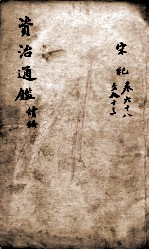 資治通鑑續編
宋紀 卷六十八
至八十三